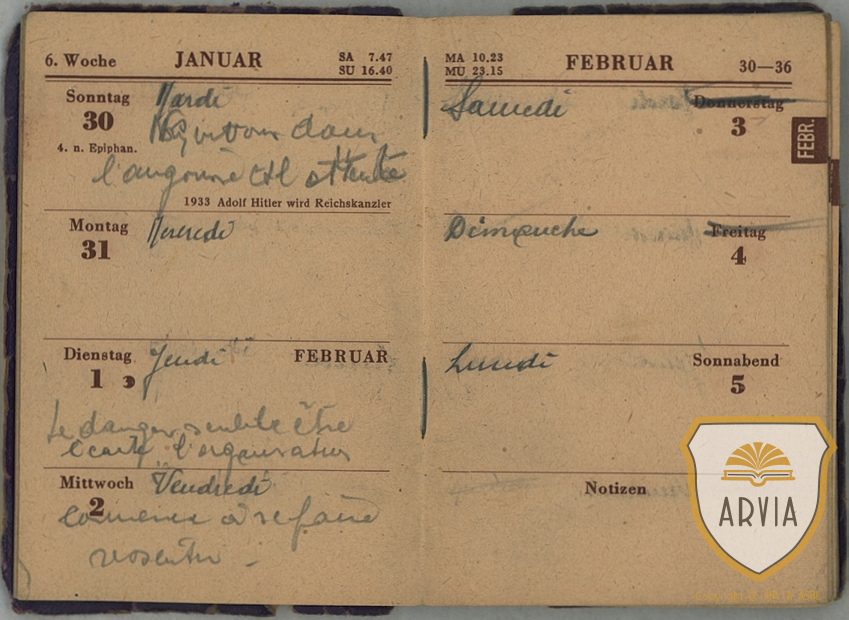 6. Woche JANUAR SA 7.47
SU 16.40
Sonntag Mardi
30
Nous vivons dans
4. n. Epiphan.
l'angoisse et l'attente
1933 Adolf Hitler wird Reichskanzler
Montag Mercredi
31
Dienstag Jeudi FEBRUAR
1
Le danger semble être
écarté l'organisation
Mittwoch Vendredi
2
commence à se faire
MA 10.23 FEBRUAR 30—36
MU 23.15
Samedi Donnerstag
3
FEBR.
Dimanche Freitag
4
Lundi Sonnabend
5
Notizen
ARVIA